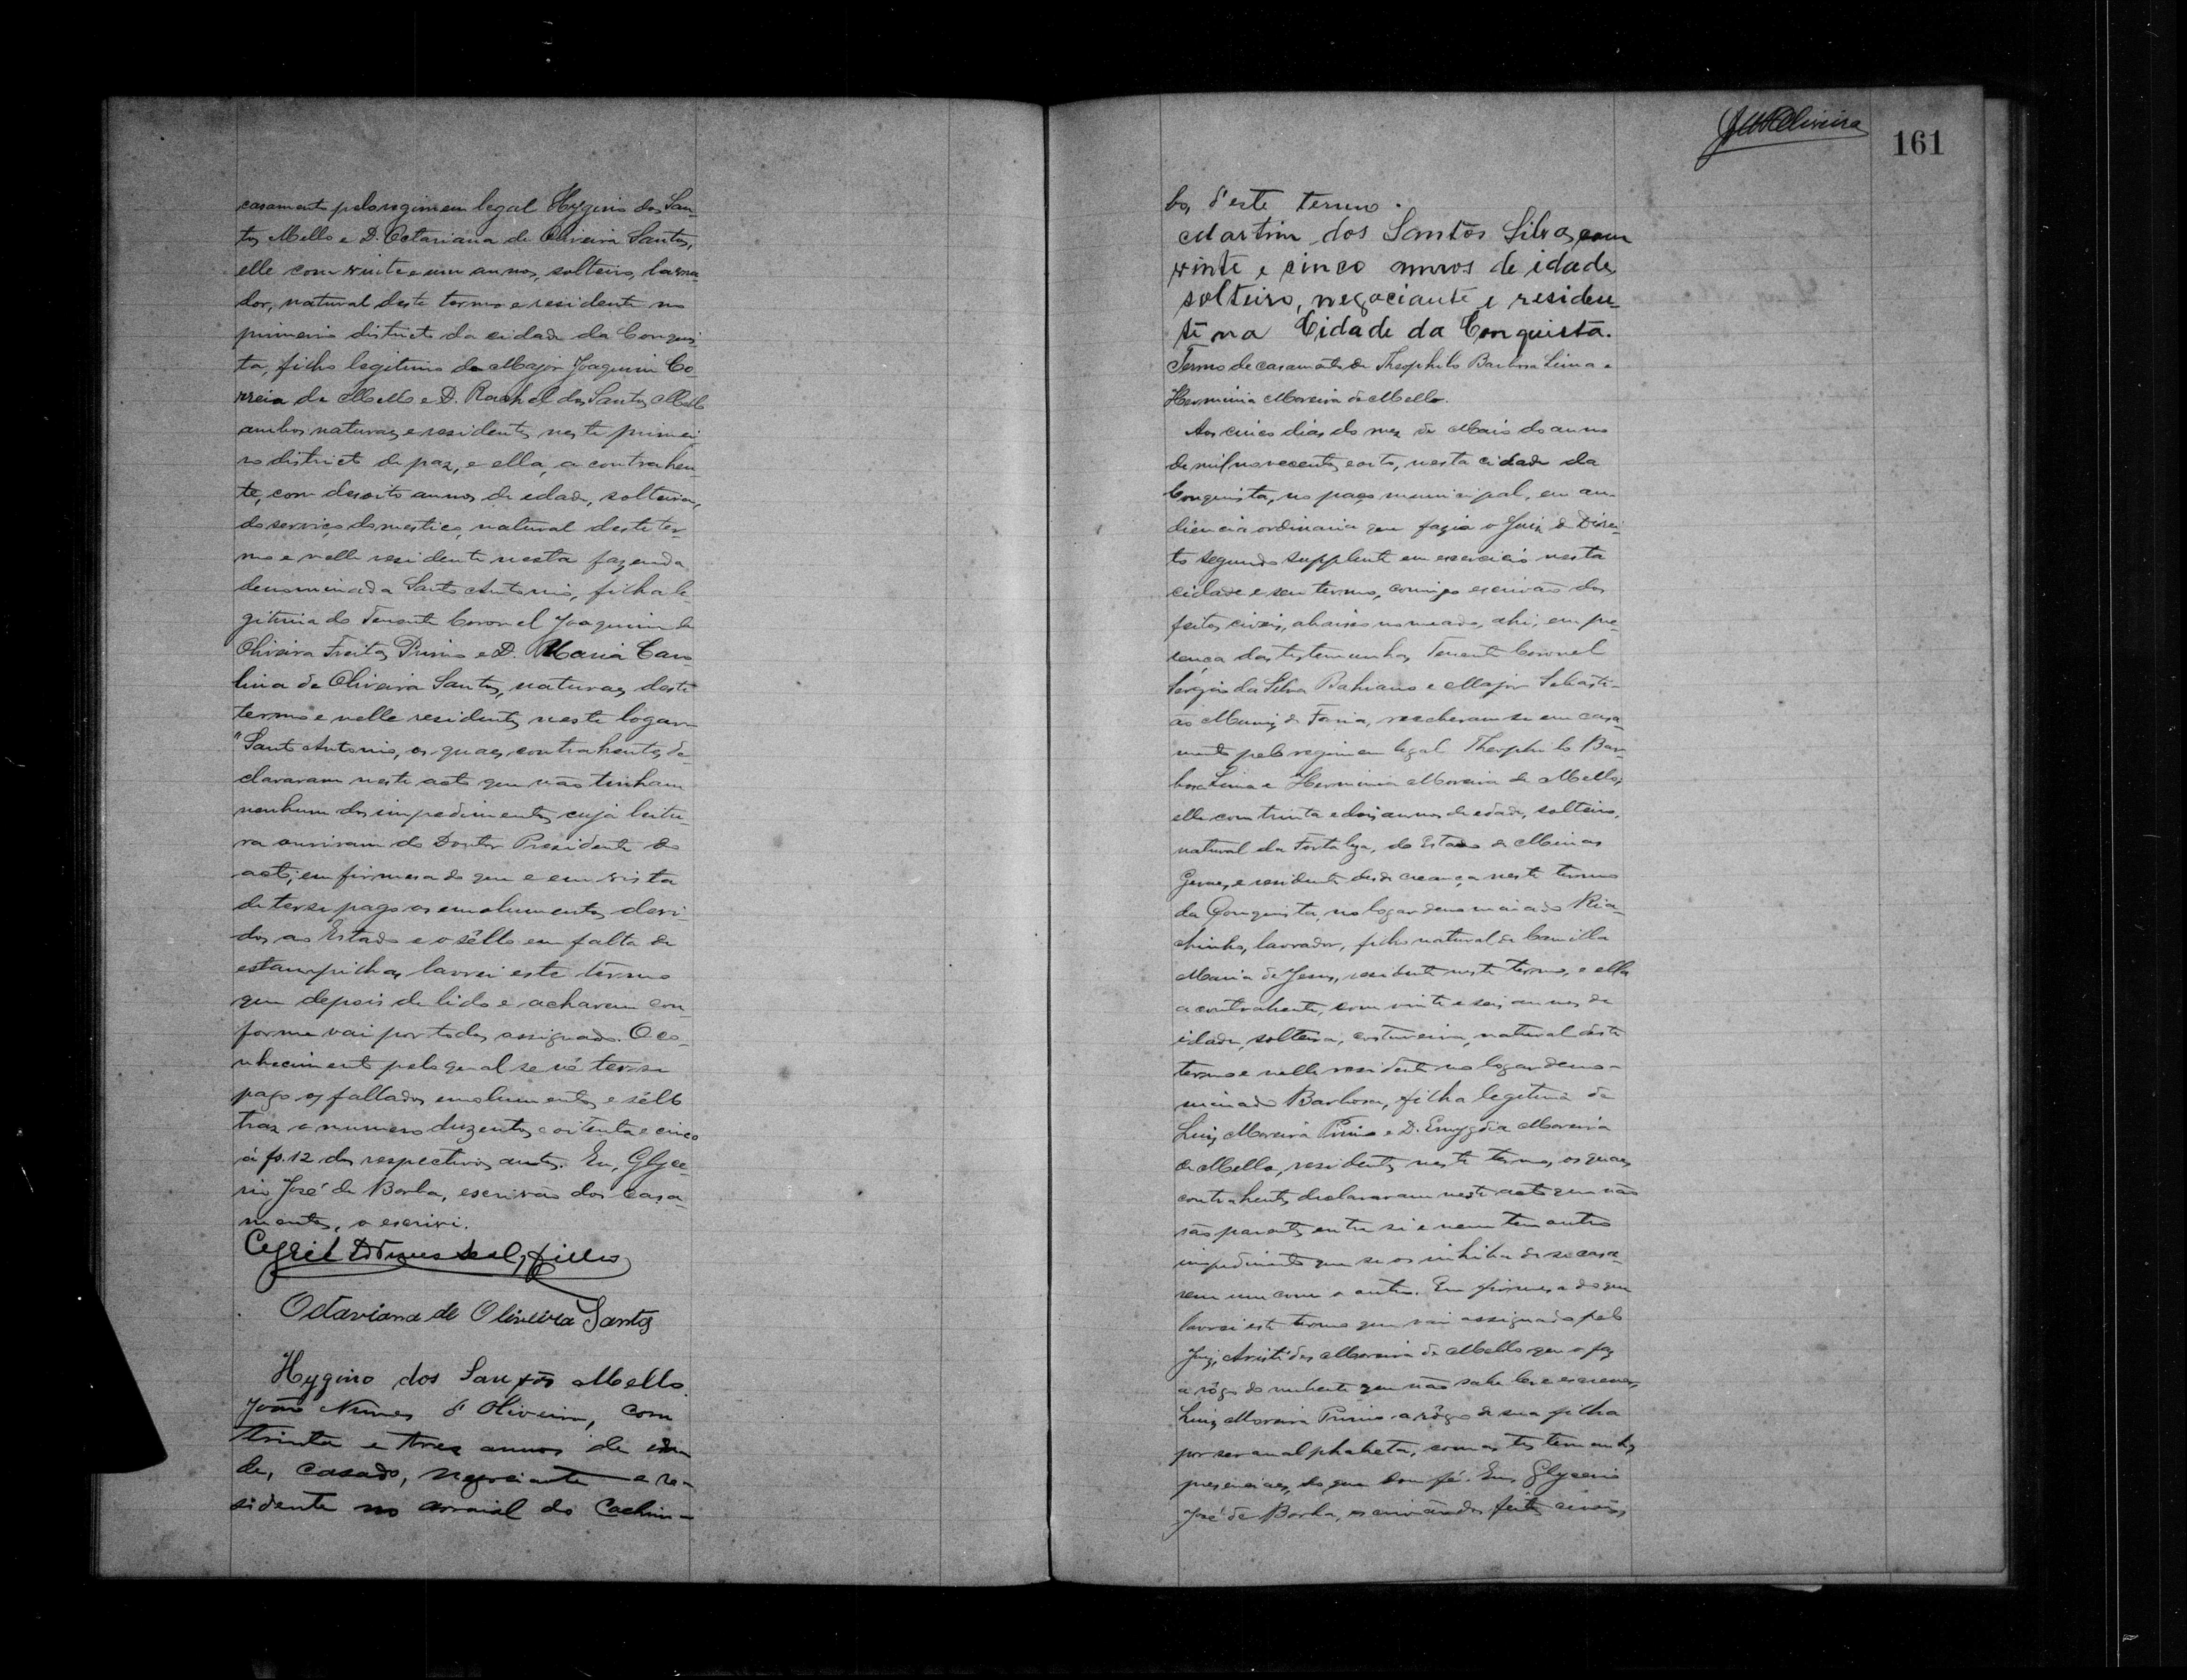 casamento pelo regimem legal Hygino dos San-
tos Mello e D. Octaviana de Oliveira Santos,
elle com vinte e um annos, solteiro, lavra-
dor, natural deste termo e residente no
primeiro districto da cidade da Conquis-
ta, filho legitimo do Major Joaquim Co-
rreia de Mello e D. Rachel dos Santos Mello
ambos naturaes e residentes neste primei-
ro districto de paz, e ella, a contrahen-
te, com desoito annos de edade, solteira,
do serviço domestico, natural deste ter-
mo e nelle residente nesta fazenda
denominada Santo Antonio, filha le-
gitima do Tenente Coronel Joaquim de
Oliveira Freitas Primo e D. Maria Caro
lina de Oliveira Santos, naturaes deste
termo e nelle residentes neste logar
"Santo Antonio, os quaes contrahentes de-
clararam neste acto que não tinham
nenhum dos impedimentos cuja leitu-
ra ouviram do Doutor Presidente do
acto; em firmesa do que e em vista
de ter-se pago os emolumentos devi-
dos ao Estado e o sêllo em falta de
estampilhas, lavrei este termo
que depois de lido e acharem con-
forme vai por todos assignado. O co-
nhecimento pelo qual se vê ter-se
pago os fallados emolumentos e sêllo
traz o numero duzentos e oitenta e cinco
á fs. 12 dos respectivos autos. Eu, Glyce-
rio José de Borba, escrivão dos casa-
mentos, o escrivi.
Octaviana de Oliveira Santos
Hygino dos Santos Mello.
João Nunes d'Oliveira, com
trinta e tres annos de ida
de, casado, negociante e re-
sidente no arraial do Cachim-
161
bo, d'este termo.
Martim dos Santos Silva, com
vinte e cinco annos de idade,
solteiro, negociante e residen-
te na Cidade da Conquista.
Termo de casamento de Theophilo Barbosa Lima e
Herminia Moreira de Mello.
Aos cinco dias do mez de Maio do anno
de mil novecentos e oito, nesta cidade da
Conquista, no paço municipal, em au-
diencia ordinaria que fazia o Juiz de Direi-
to segundo supplente em exercicio nesta
cidade e seu termo, comigo escrivão dos
feitos civeis, abaixo nomeado, ahi, em pre-
sença das testemunhas Tenente Coronel
Sergio da Silva Bahiano e Major Sebasti-
ão Muniz de Faria, receberam-se em casa-
mento pelo regimem legal Theophilo Bar-
bosa Lima e Herminia Moreira de Mello;
elle com trinta e dois annos de edade, solteiro,
natural da Fortaleza, do Estado de Minas
Geraes, e residente desde creança neste termo
da Conquista, no logar denominado Ria-
chinho, lavrador, filho natural de Camilla
Maria de Jesus, residente neste termo, e ella
a contrahente, com vinte e seis annos de
idade, solteira, costureira, natural deste
termo e nelle residente no logar deno-
minado Barbosa, filha legitima de
Luiz Moreira Primo e D. Emygdia Moreira
de Mello, residentes neste termo, os quaes
contrahentes declararam neste acto que não
são parentes entre si e nem tem outro
impedimento que se os inhiba de se casa-
rem um com o outro. Em firmesa do que
lavrei este termo que vai assignado pelo
Juiz, Aristides Moreira de Mello que o faz
a rôgo do nubente que não sabe ler e escrever,
Luiz Moreira Primo a rôgo de sua filha
por ser analphabeta, com as testemunhas
presenciaes, do que dou fé. Eu, Glycerio
José de Borba, escrivão dos feitos civeis,